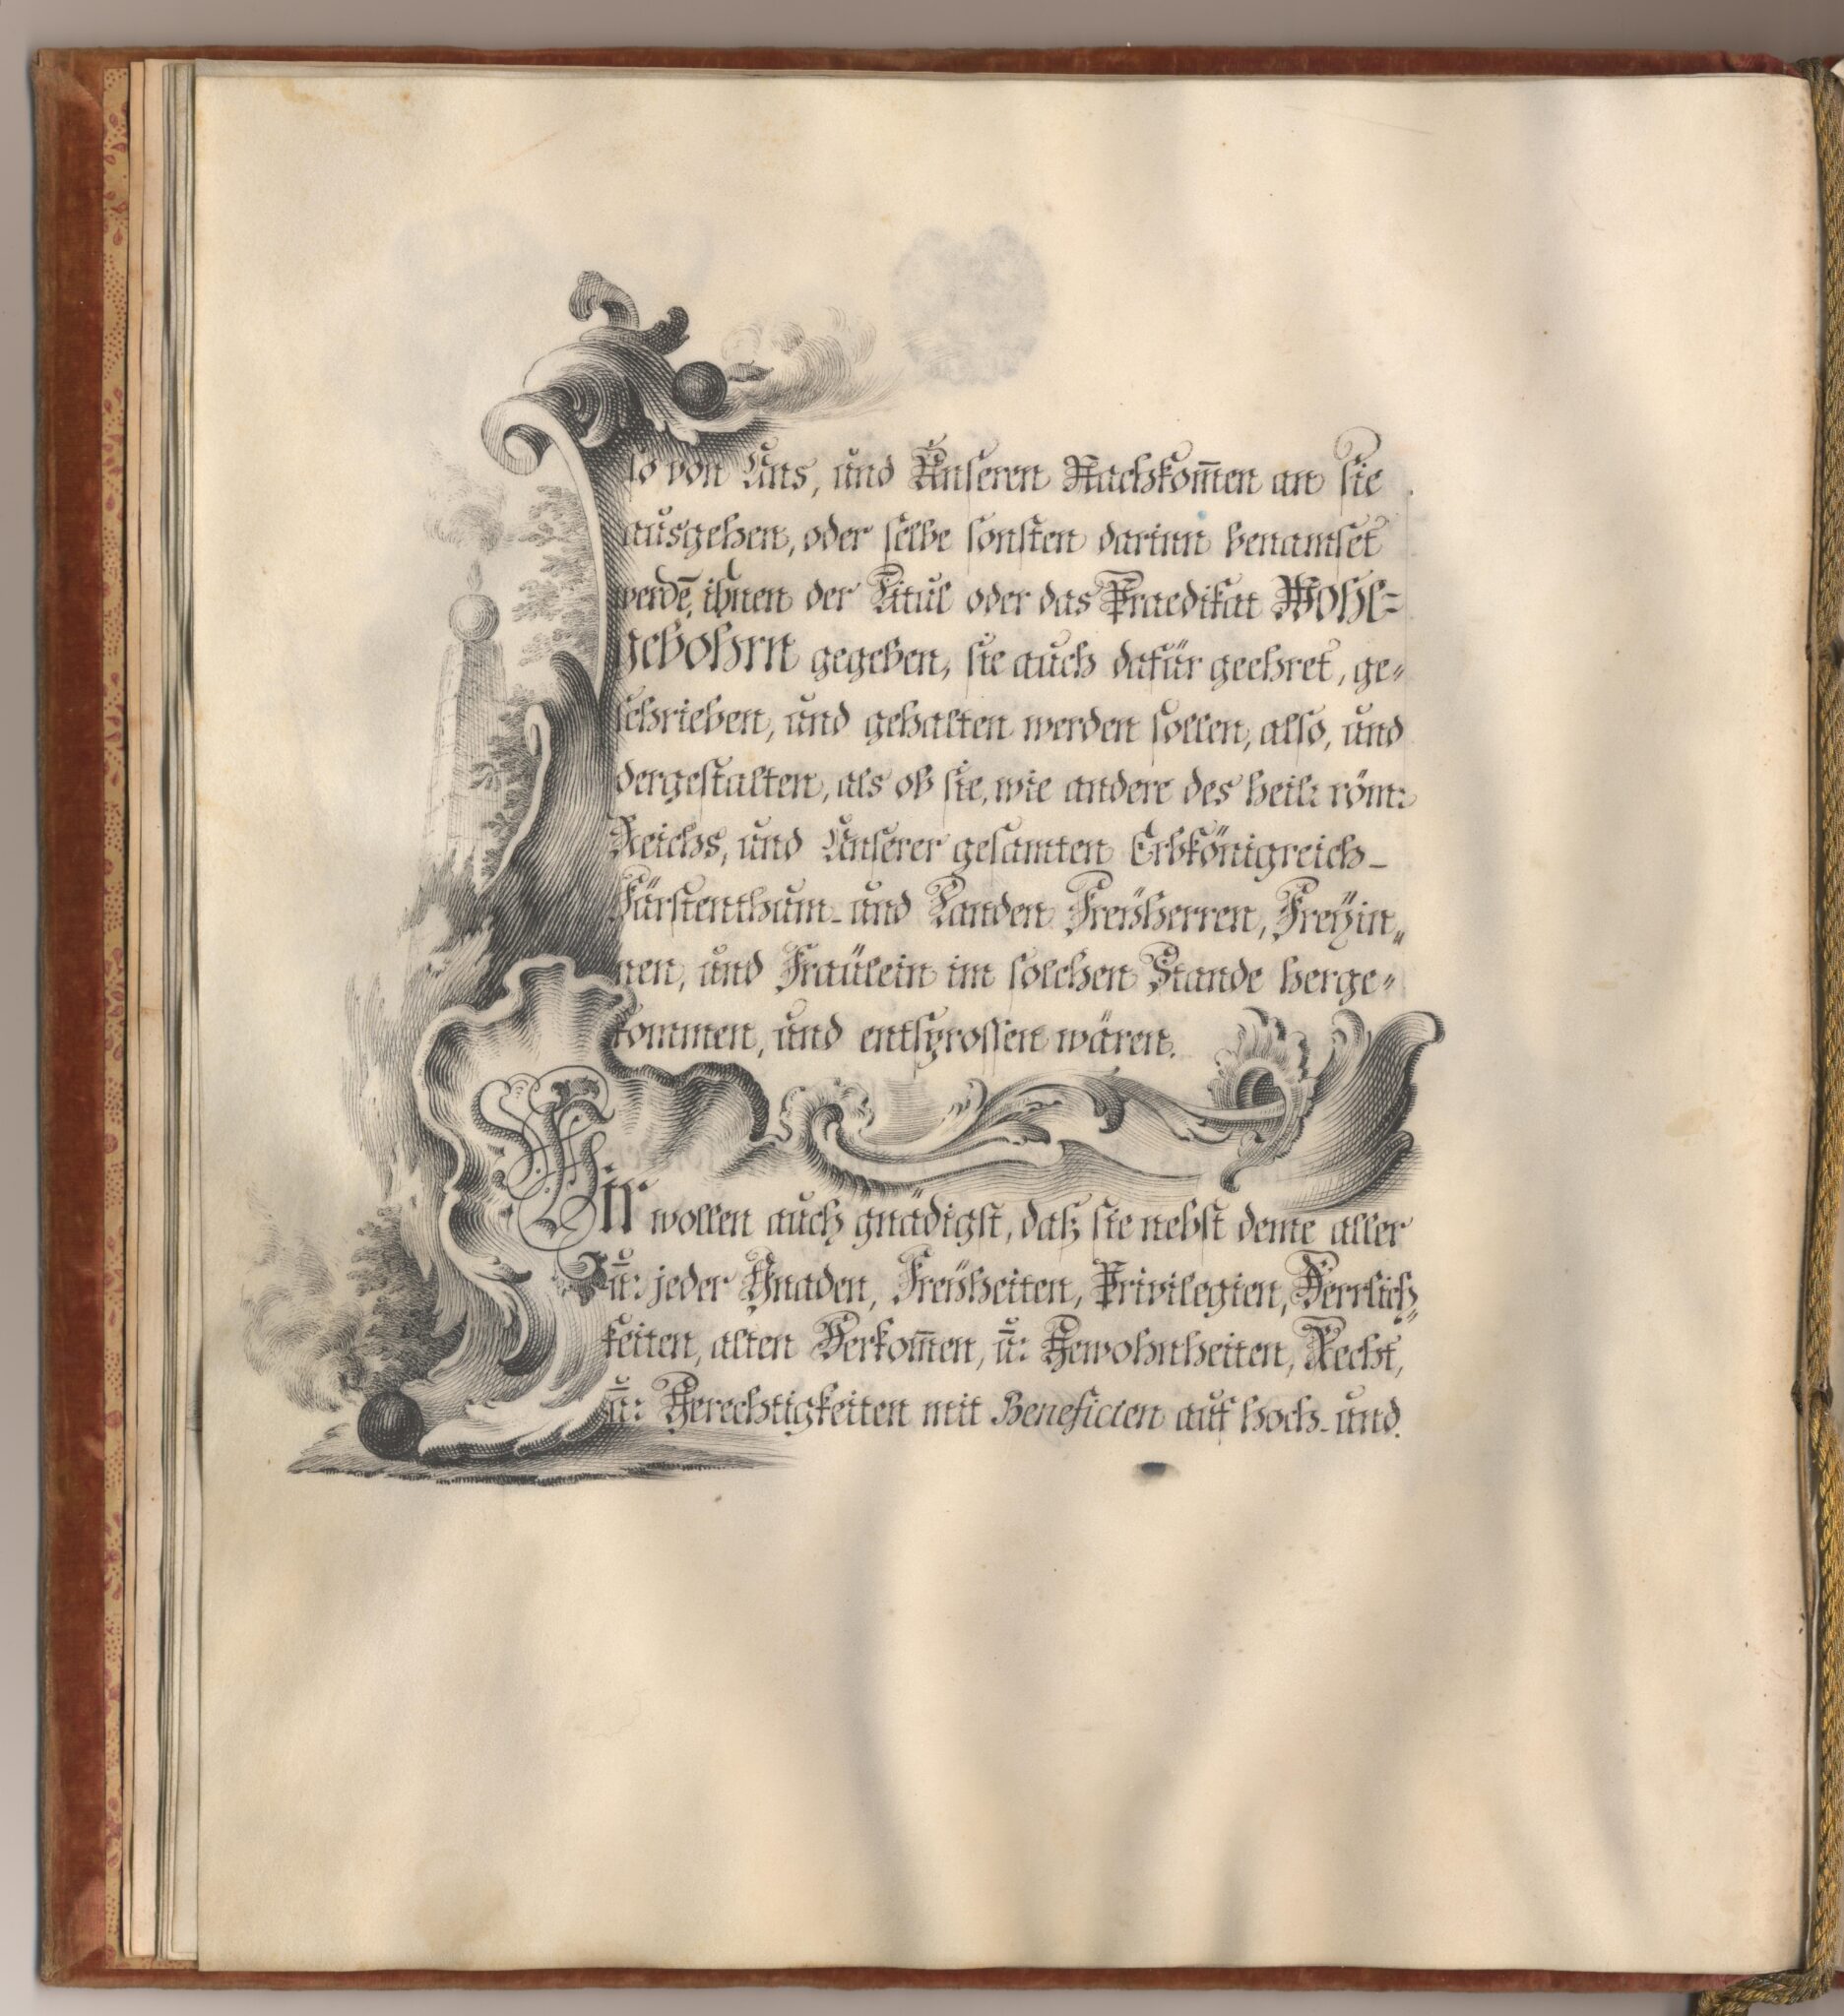 so von Uns, und Unseren Nachkom̅en an sie
ausgehen, oder selbe sonsten darinn benamset
werde̅, ihnen der Titul oder das Praedikat Wohl=
gebohrn gegeben, sie auch dafür geehret, ge„
schrieben, und gehalten werden sollen, also, und
dergestalten, als ob sie, wie andere des heil: röm:
Reichs, und Unserer gesamten Erbkönigreich-
Fürstenthum- und Landen Freÿherren, Freÿin„
nen, und Fraülein im solchen Stande herge„
kommen, und entsprossen wären.
Wir wollen auch gnädigst, daß sie nebst deme aller
u̅: jeder Gnaden, Freÿheiten, Privilegien, Herrlich„
keiten, alten Herkom̅en, u̅: Gewohnheiten, Recht,
u̅: Gerechtigkeiten mit Beneficien auf hoch- und